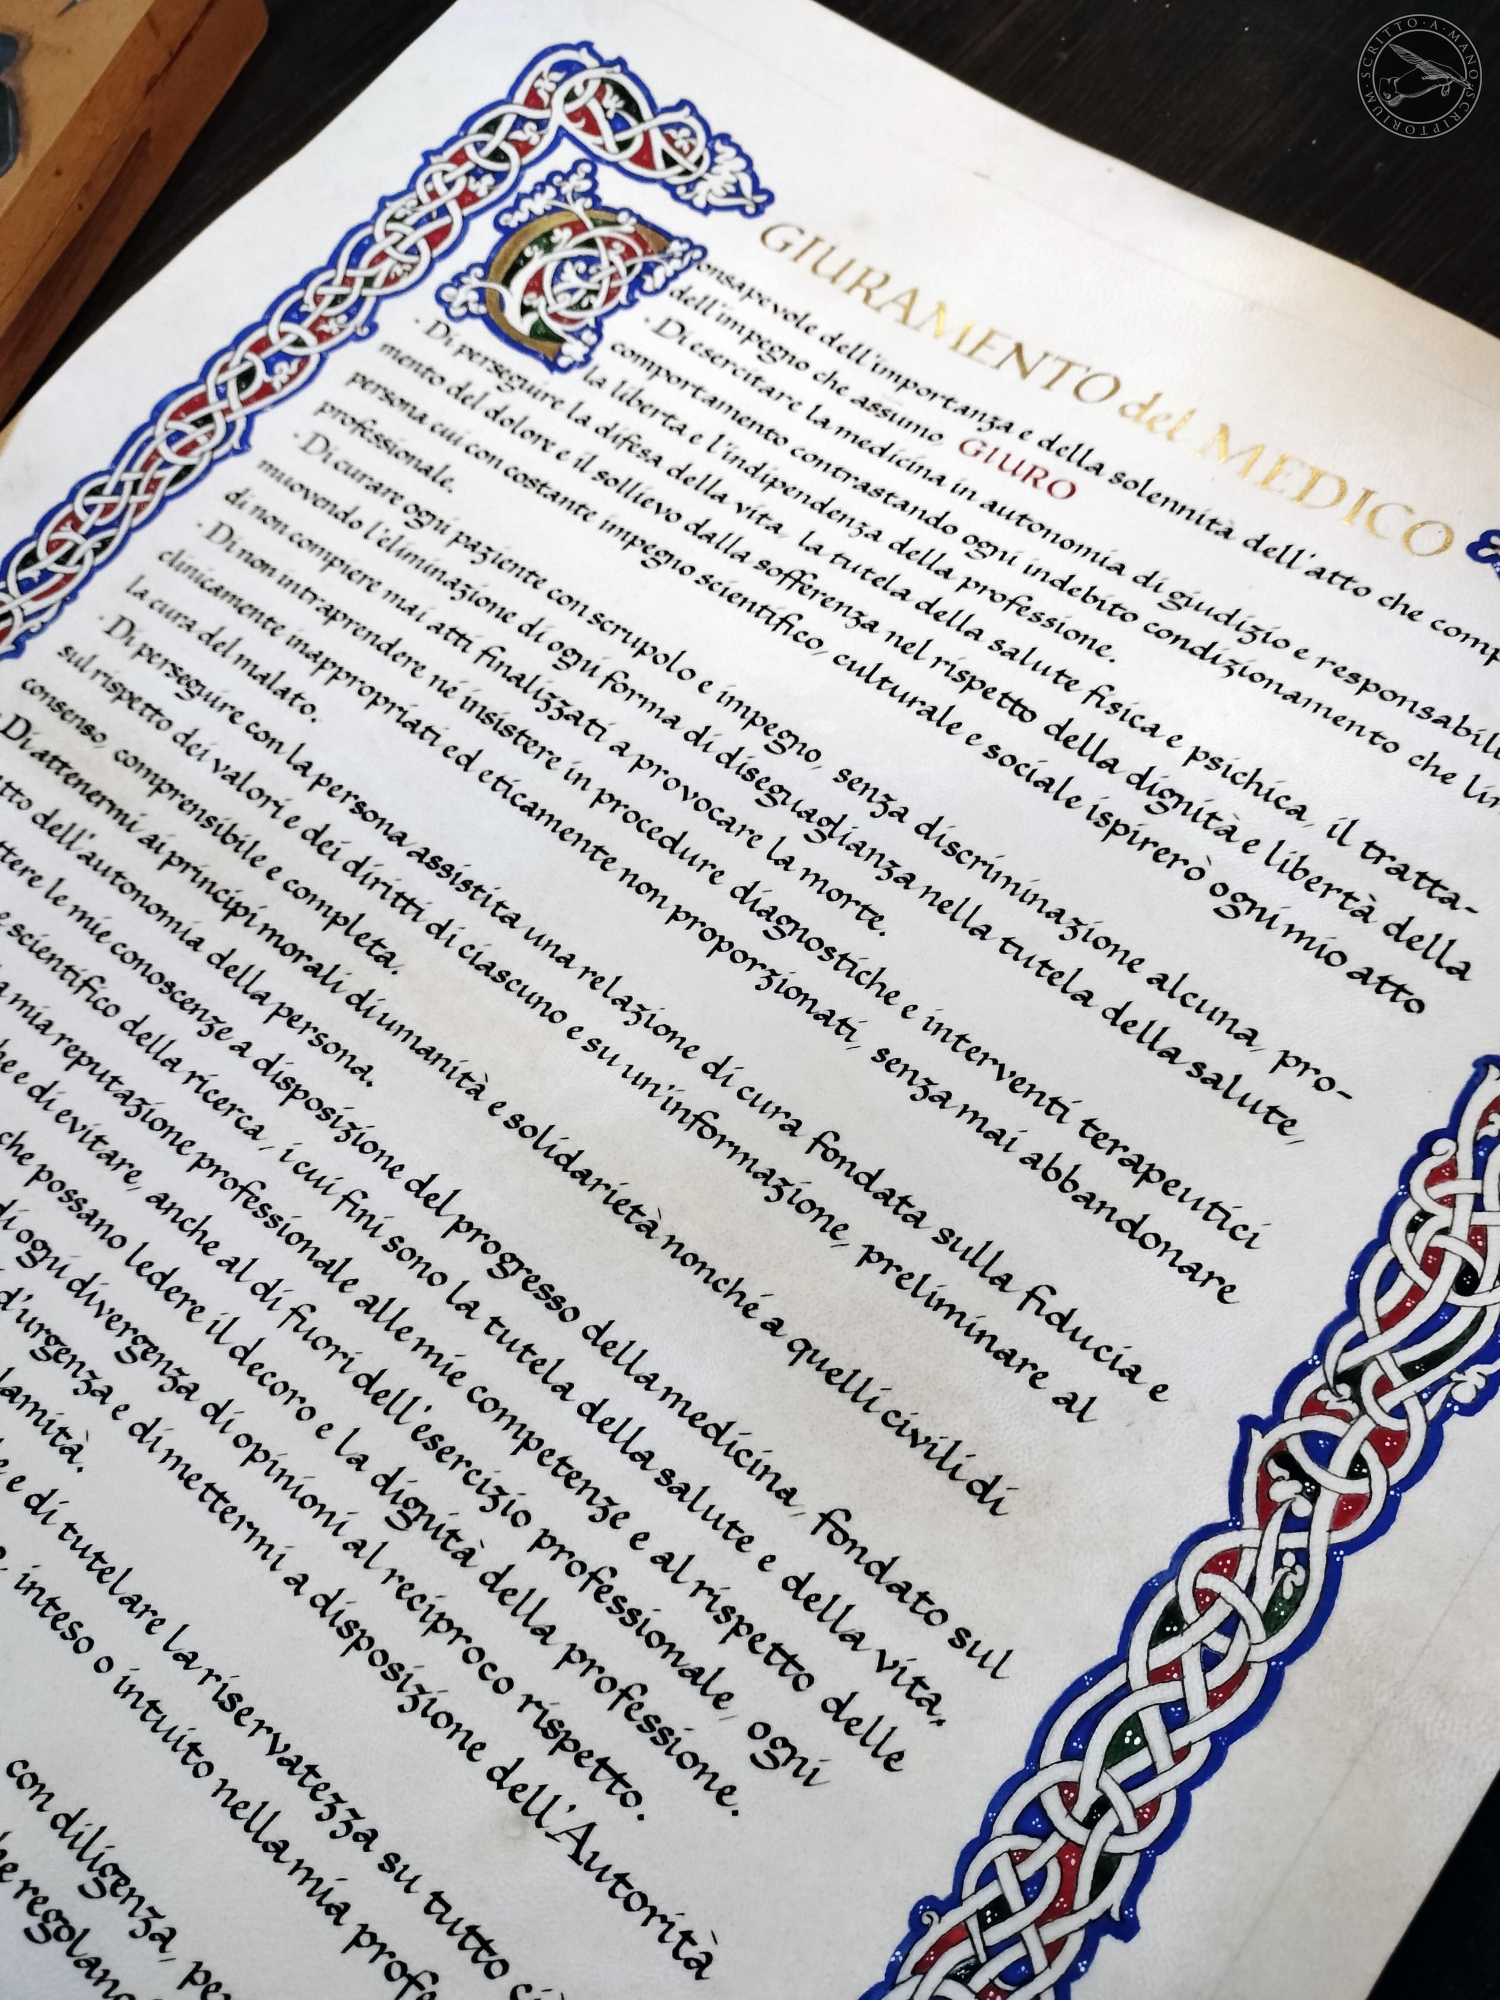 SCRITTO · A · MANO · SCRIPTORIUM
GIURAMENTO del MEDICO
Consapevole dell'importanza e della solennità dell'atto che
dell'impegno che assumo, GIURO
· Di esercitare la medicina in autonomia di giudizio e
comportamento contrastando ogni indebito condizionamento che
la liberta e l'indipendenza della professione.
· Di perseguire la difesa della vita, la tutela della salute fisica e psichica, il tratta-
mento del dolore e il sollievo dalla sofferenza nel rispetto della dignità e libertà della
persona cui con costante impegno scientifico, culturale e sociale ispirerò ogni mio atto
professionale.
· Di curare ogni paziente con scrupolo e impegno, senza discriminazione alcuna, pro-
muovendo l'eliminazione di ogni forma di diseguaglianza nella tutela della salute,
di non compiere mai atti finalizzati a provocare la morte.
· Di non intraprendere né insistere in procedure diagnostiche e interventi terapeutici
clinicamente inappropriati ed eticamente non proporzionati, senza mai abbandonare
la cura del malato.
· Di perseguire con la persona assistita una relazione di cura fondata sulla fiducia e
sul rispetto dei valori e dei diritti di ciascuno e su un'informazione, preliminare al
consenso, comprensibile e completa.
· Di attenermi ai principi morali di umanità e solidarietà nonché a quelli civili di
dell'autonomia della persona.
le mie conoscenze a disposizione del progresso della medicina, fondato sul
e scientifico della ricerca, i cui fini sono la tutela della salute e della vita.
mia reputazione professionale alle mie competenze e al rispetto delle
e di evitare, anche al di fuori dell'esercizio professionale, ogni
che possano ledere il decoro e la dignità della professione.
di ogni divergenza di opinioni al reciproco rispetto.
d'urgenza e di mettermi a disposizione dell'Autorità
e di tutelare la riservatezza su tutto
inteso o intuito nella mia
con diligenza,